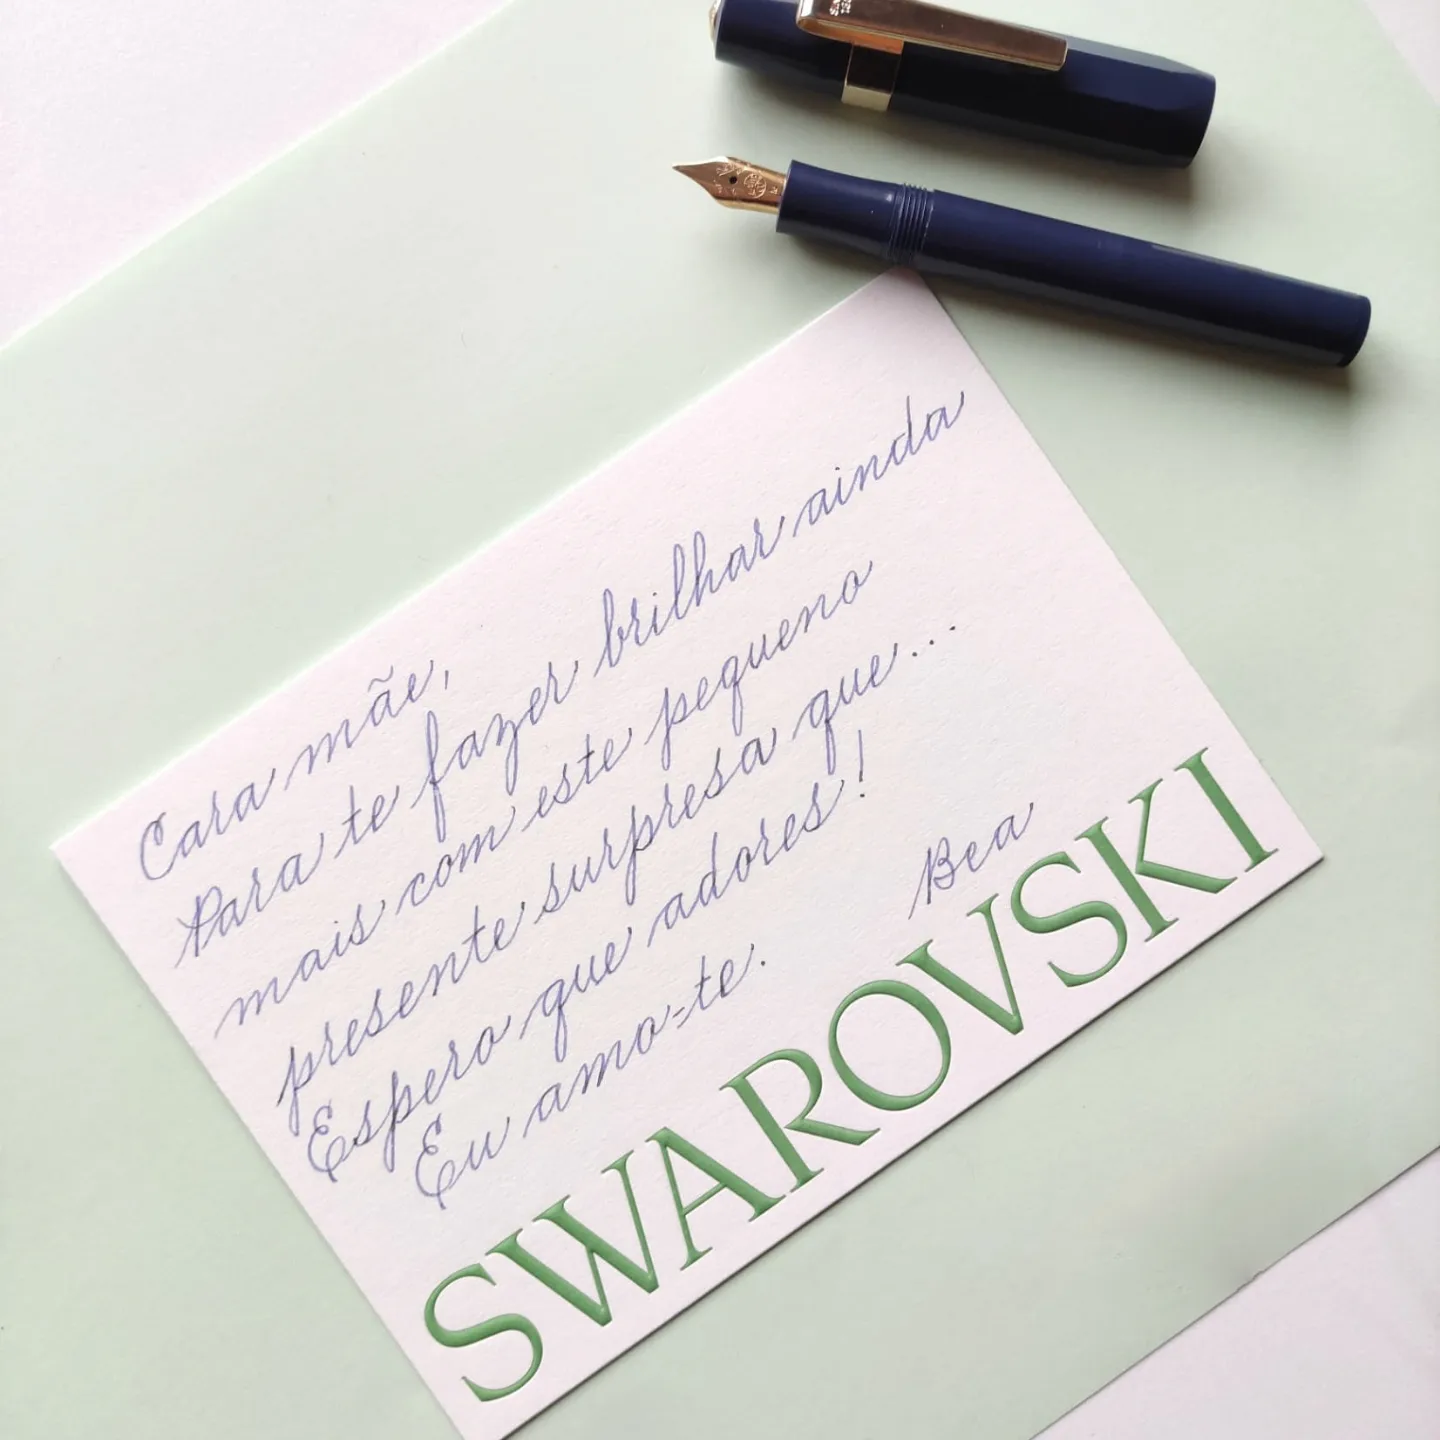 Cara mãe,
Para te fazer brilhar ainda
mais com este pequeno
presente surpresa que...
Espero que adores!
Eu amo-te.
Bea
SWAROVSKI